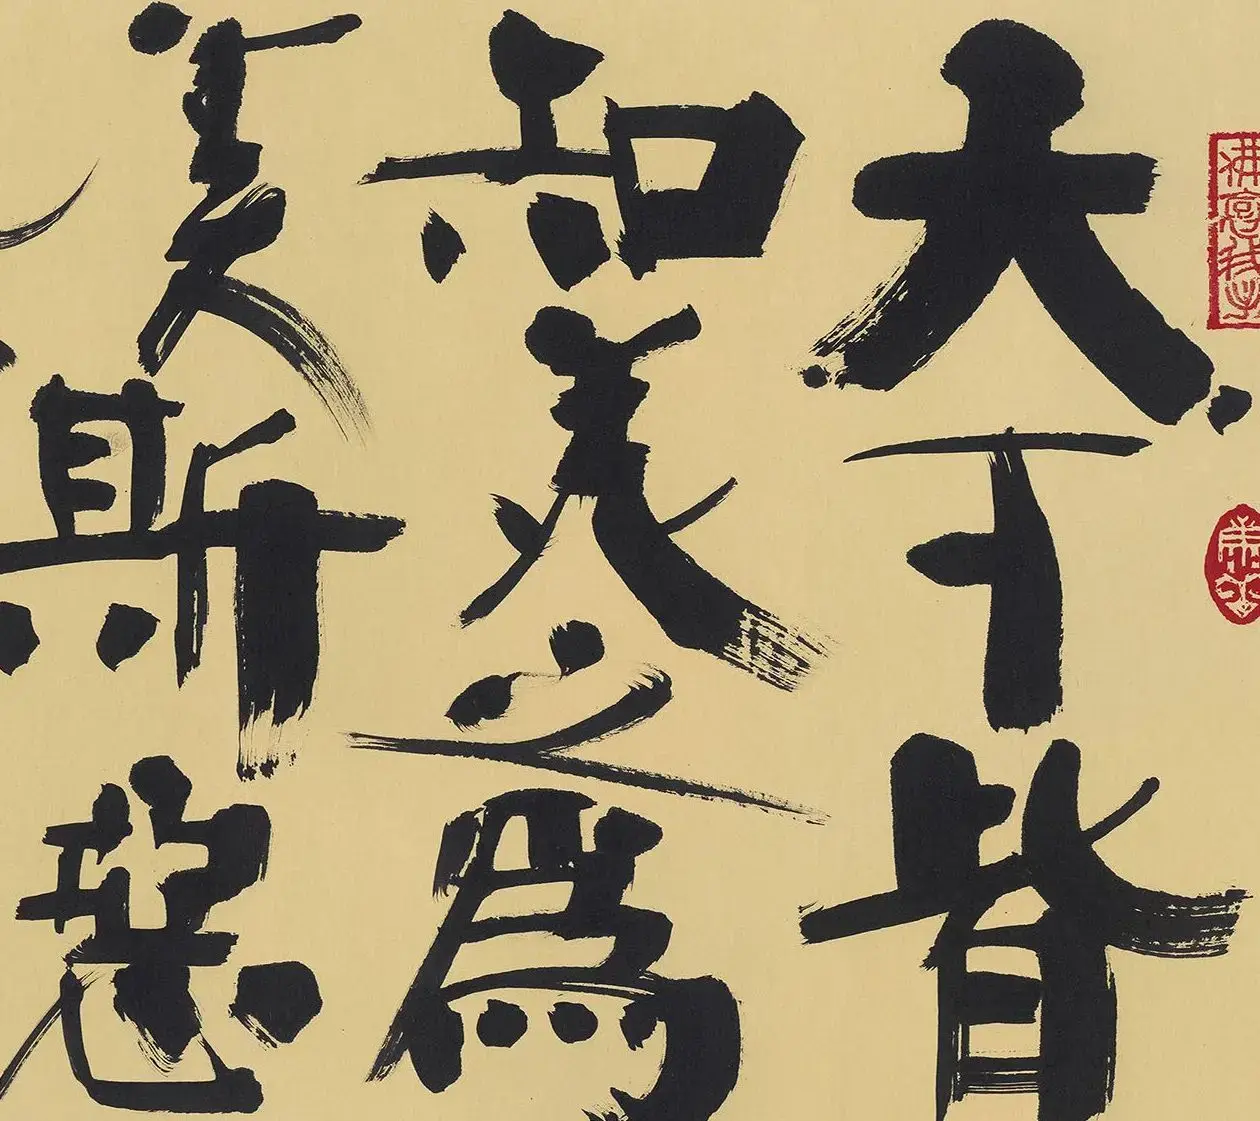 天下皆
知美之為
美斯惡